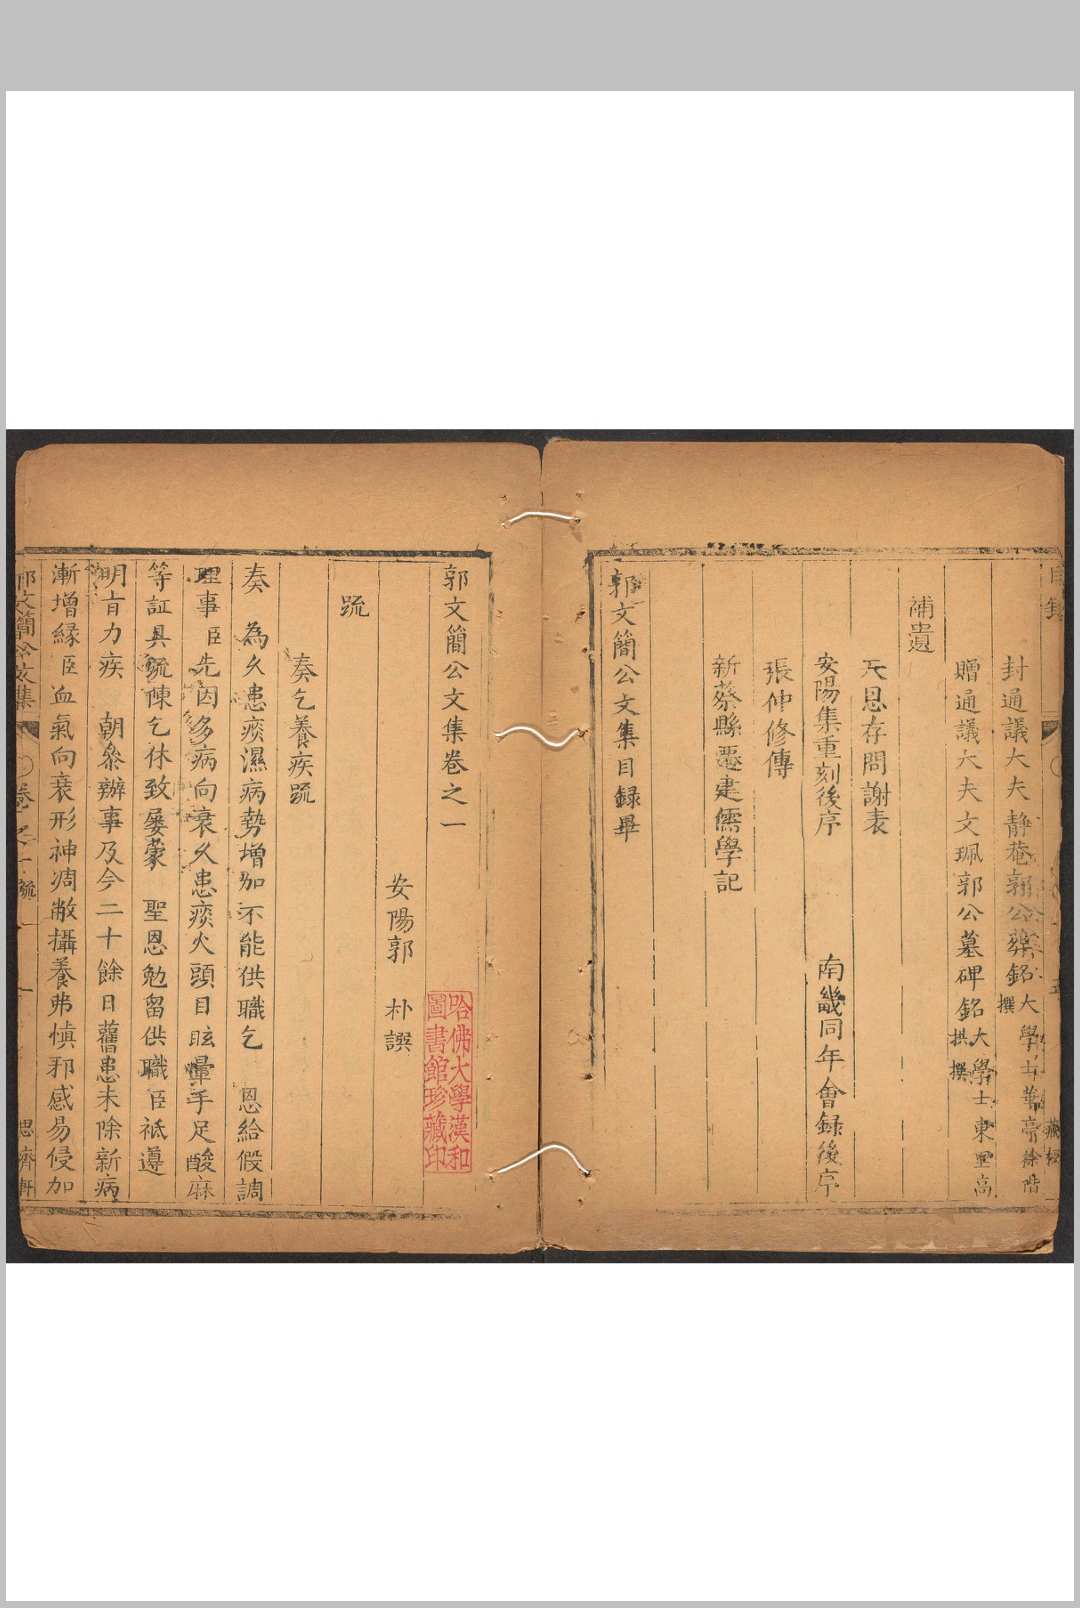 封通議大夫靜菴郭公墓銘大學士華亭徐階撰
贈通議大夫文珮郭公墓碑銘大學士東里高拱撰
補遺
天恩存問謝表
安陽集重刻後序 南畿同年會録後序
張仲修傳
新蔡縣遷建儒學記
郭文簡公文集目録畢
郭文簡公文集卷之一
安陽郭 朴譔
疏
奏乞養疾疏
奏 為久患痰濕病勢增加不能供職乞 恩給假調
理事臣先因多病向衰久患痰火頭目眩暈手足酸麻
等証具疏陳乞休致屡蒙 聖恩勉留供職臣祗遵
明旨力疾 朝叅辦事及今二十餘日舊患未除新病
漸增緣臣血氣向衰形神凋敝攝養弗慎邪感易侵加
郭文簡公文集 卷之一 疏 一 思齊軒
哈佛大學漢和
圖書館珍藏印